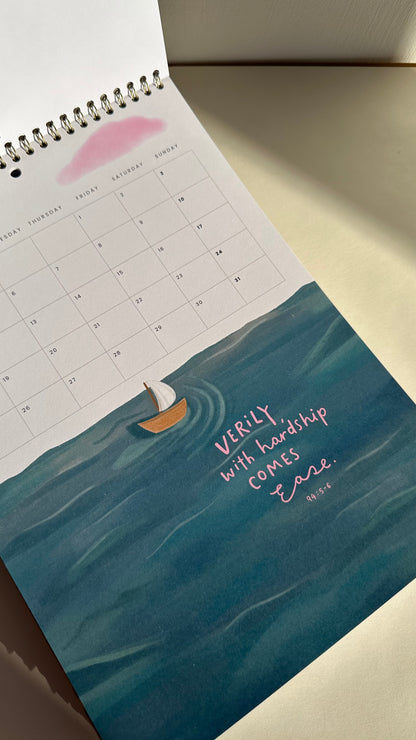 ESDAY THURSDAY FRIDAY SATURDAY SUNDAY
1 2 3
6 7 8 9 10
13 14 15 16 17
19 20 21 22 23 24
26 27 28 29 30 31
VERILY,
with hardship
COMES
Ease.
94:5-6